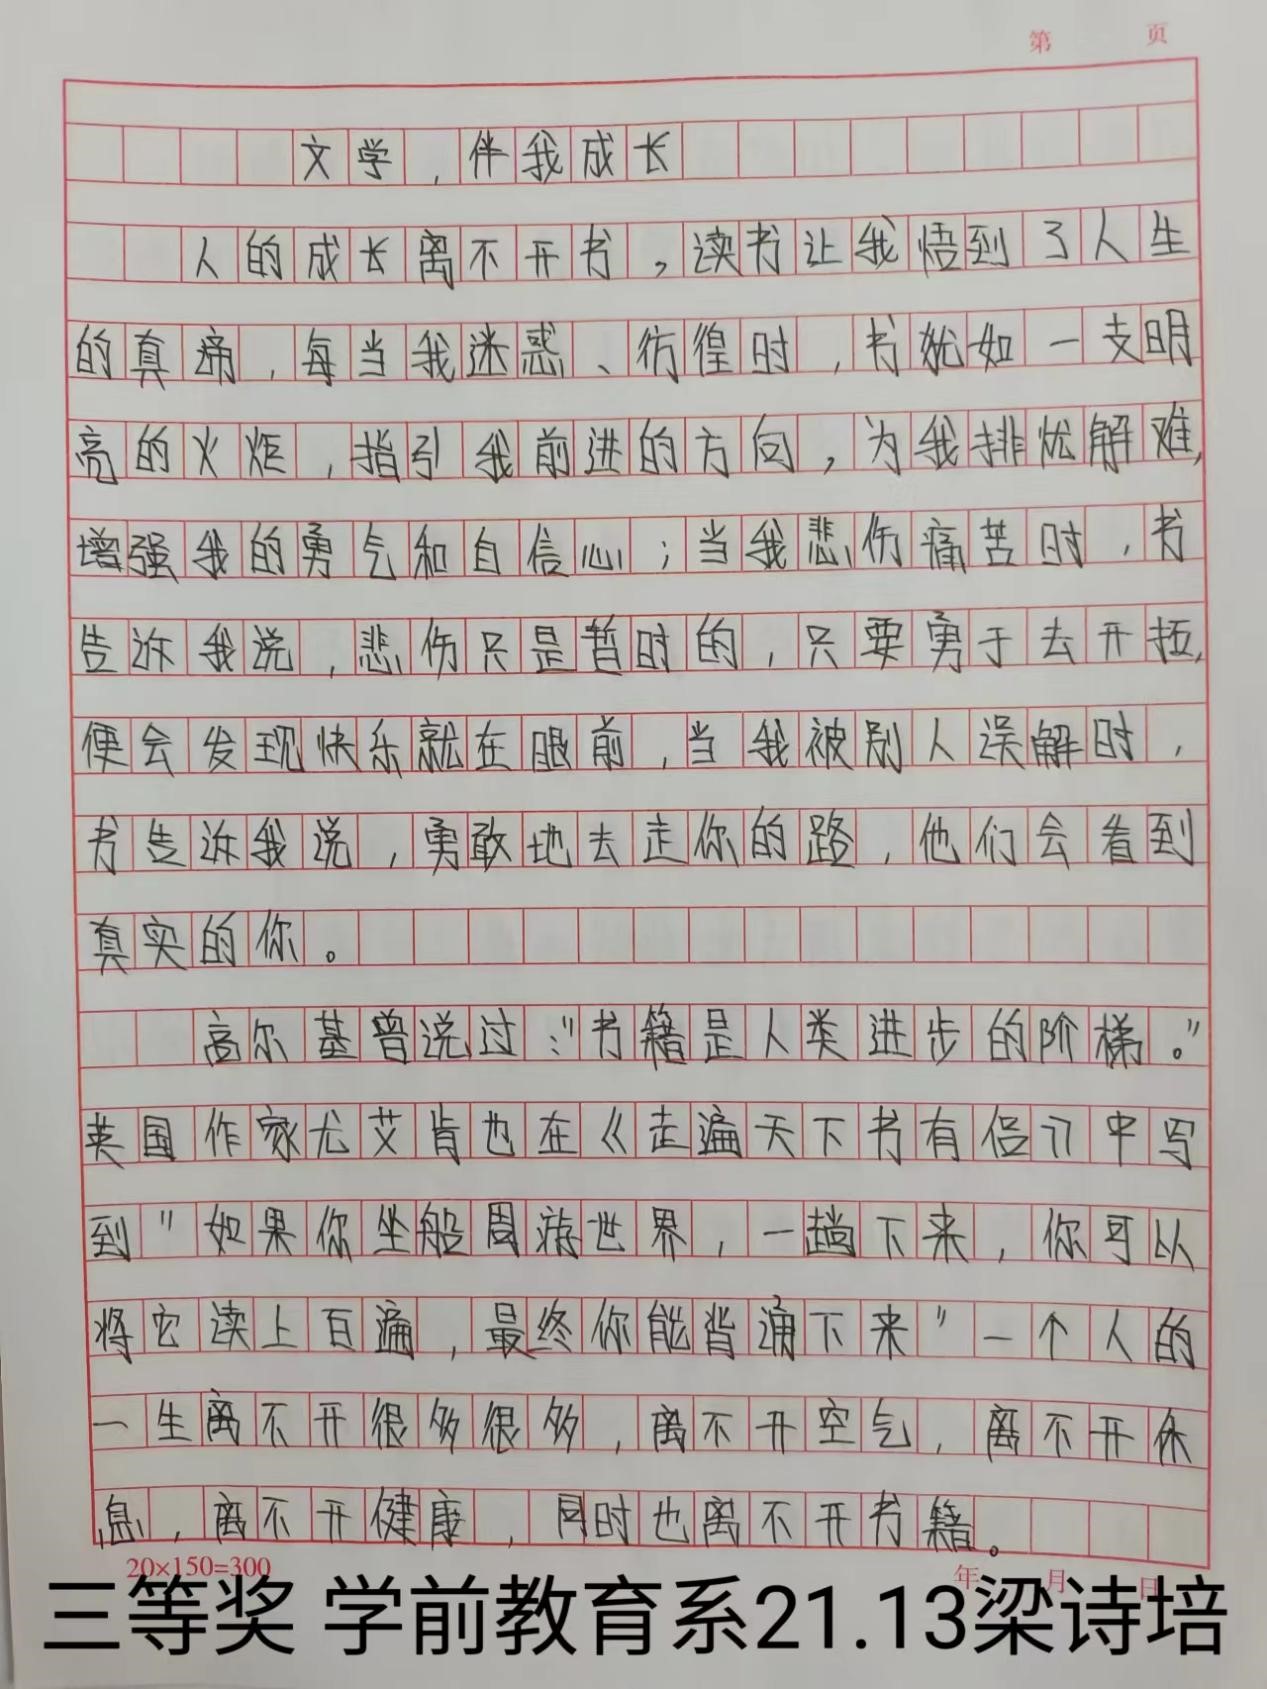 第 页
文学，伴我成长
人的成长离不开书，读书让我悟到了人生
的真谛，每当我迷惑、彷徨时，书犹如一支明
亮的火炬，指引我前进的方向，为我排忧解难，
增强我的勇气和自信心；当我悲伤痛苦时，书
告诉我说，悲伤只是暂时的，只要勇于去开拓，
便会发现快乐就在眼前，当我被别人误解时，
书告诉我说，勇敢地去走你的路，他们会看到
真实的你。
高尔基曾说过："书籍是人类进步的阶梯。"
英国作家尤艾肯也在《走遍天下书有侣》中写
到"如果你坐船周游世界，一趟下来，你可以
将它读上百遍，最终你能背诵下来"一个人的
一生离不开很多很多，离不开空气，离不开休
息，离不开健康，同时也离不开书籍。
20×150=300 年 月 日
三等奖 学前教育系21.13梁诗培